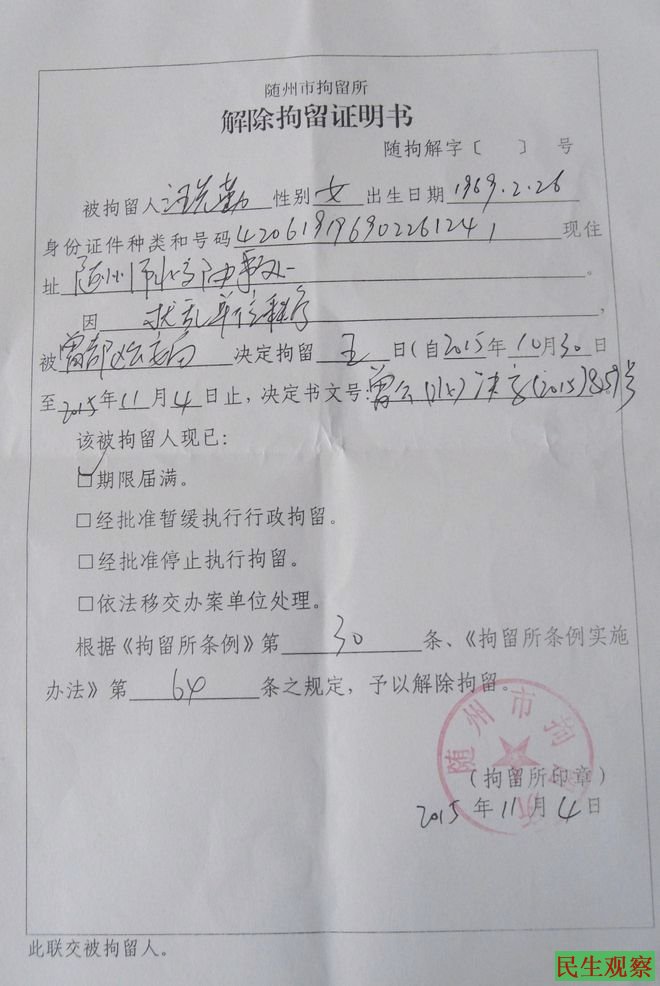 随州市拘留所
解除拘留证明书
随拘解字〔 〕 号
被拘留人 性别女出生日期1969.2.26
身份证件种类和号码420619196902261241,现住
址随州市 。
因扰乱单位秩序,
被曾都 决定拘留五日(自2015年10月30日
至2015年11月4日止,决定书文号曾公( )决字(2015)859号
该被拘留人现已:
□期限届满。
□经批准暂缓执行行政拘留。
□经批准停止执行拘留。
□依法移交办案单位处理。
根据《拘留所条例》第30条、《拘留所条例实施
办法》第64条之规定,予以解除拘留。
随州市拘留所
(拘留所印章)
2015年11月4日
此联交被拘留人。
民生观察